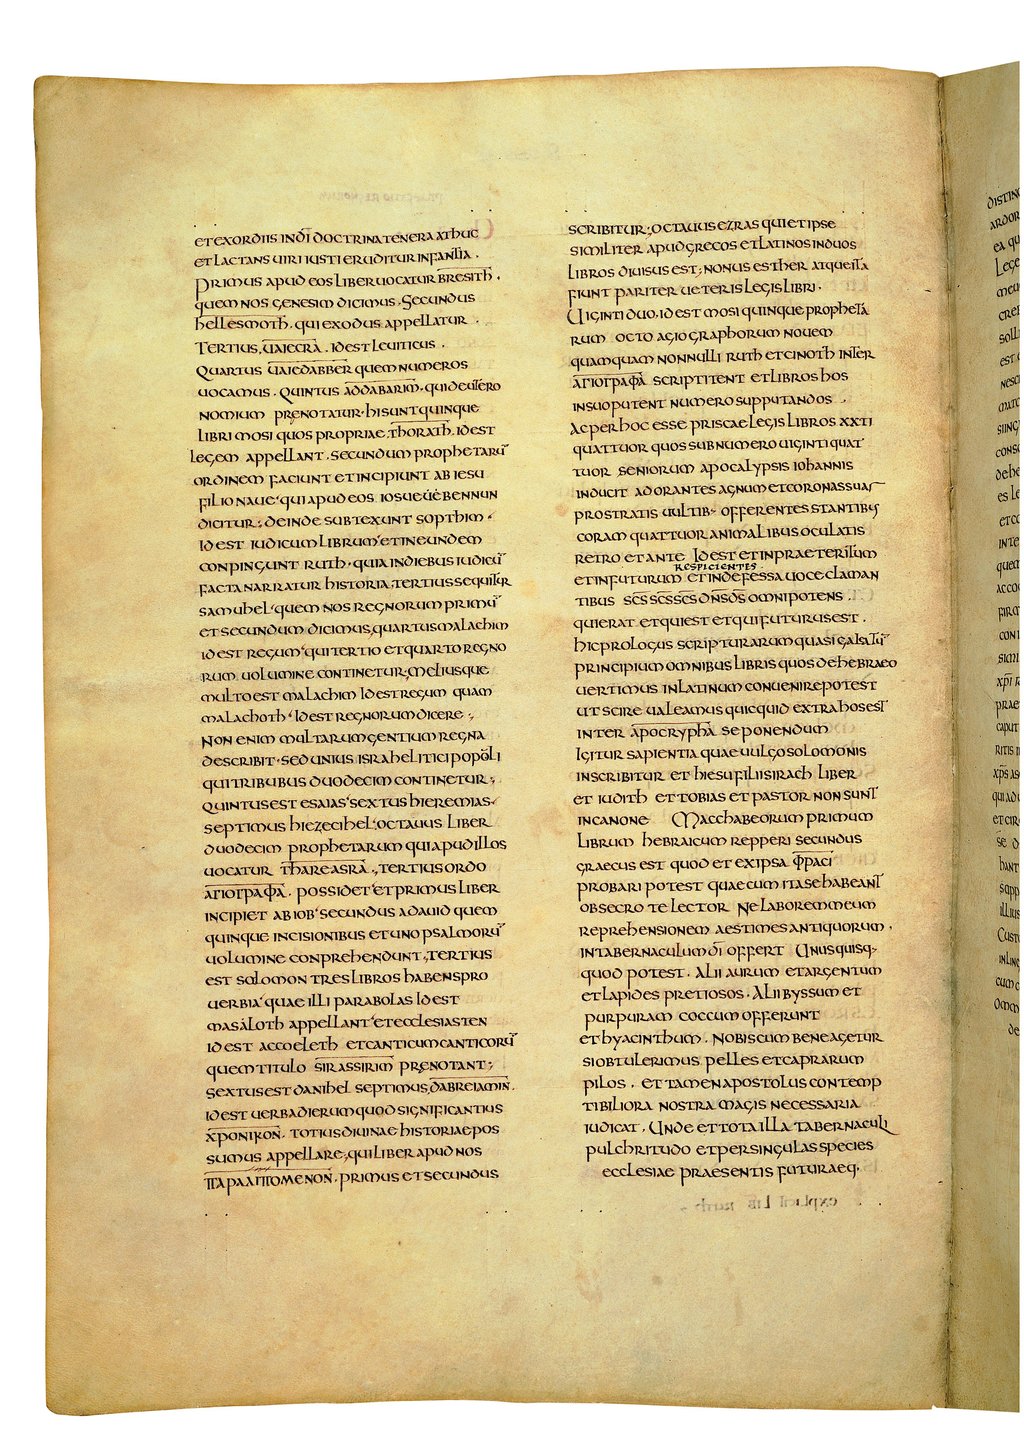 ET EXORDIIS IN DI DOCTRINA TENERA ATHUC
ET LACTANS UIRI IUSTI ERUDITUR INFANTIA ·
PRIMUS APUD EOS LIBER UOCATUR BRESITH ·
QUEM NOS GENESIM DICIMUS · SECUNDUS
HELLESMOTH · QUI EXODUS APPELLATUR ·
TERTIUS, UAIECRA · ID EST LEUITICUS ·
QUARTUS UAIEDABBER QUEM NUMEROS
UOCAMUS · QUINTUS ADDABARIM · QUI DEUTERO
NOMIUM PRENOTATUR · HI SUNT QUINQUE
LIBRI MOSI QUOS PROPRIAE, THORATH, ID EST
LEGEM APPELLANT · SECUNDUM PROPHETARŪ
ORDINEM FACIUNT ET INCIPIUNT AB IESU
FILIO NAUE' QUI APUD EOS IOSUE UE BENNUN
DICITUR ; DEINDE SUBTEXUNT SOPTHIM ·
ID EST IUDICUM LIBRUM' ET IN EUNDEM
CONPINGUNT RUTH · QUIA IN DIEBUS IUDICŪ
FACTA NARRATUR HISTORIA, TERTIUS SEQUITUR
SAMUHEL' QUEM NOS REGNORUM PRIMŪ
ET SECUNDUM DICIMUS, QUARTUS MALACHIM
ID EST REGUM' QUI TERTIO ET QUARTO REGNO
RUM UOLUMINE CONTINETUR; MELIUSQUE
MULTO EST MALACHIM ID EST REGUM QUAM
MALACHOTH' ID EST REGNORUM DICERE ;
NON ENIM MULTARUM GENTIUM REGNA
DESCRIBIT · SED UNIUS ISRAHELITICI POPOLI
QUI TRIBUBUS DUODECIM CONTINETUR ;
QUINTUS EST ESAIAS' SEXTUS HIEREMIAS ·
SEPTIMUS HIEZECIHEL' OCTAUUS LIBER
DUODECIM PROPHETARUM QUI APUD ILLOS
UOCATUR THAREASRA ·, TERTIUS ORDO
ΑΓΙΟΓΡΑΦΑ · POSSIDET' ET PRIMUS LIBER
INCIPIET AB IOB' SECUNDUS A DAUID QUEM
QUINQUE INCISIONIBUS ET UNO PSALMORŪ
UOLUMINE CONPREHENDUNT ·, TERTIUS
EST SALOMON TRES LIBROS HABENS PRO
UERBIA' QUAE ILLI PARABOLAS ID EST
MASALOTH APPELLANT' ET ECCLESIASTEN
ID EST ACCOELETH ET CANTICUM CANTICORŪ
QUEM TITULO SIRASSIRIM PRENOTANT ;
SEXTUS EST DANIHEL SEPTIMUS, DABREIAMIN ·
ID EST UERBA DIERUM QUOD SIGNIFICANTIUS
ΧΡΟΝΙΚΟΝ · TOTIUS DIUINAE HISTORIAE POS
SUMUS APPELLARE, QUI LIBER APUD NOS
ΠΑΡΑΛΙΠΟΜΕΝΟΝ · PRIMUS ET SECUNDUS
SCRIBITUR ; OCTAUUS EZRAS QUI ET IPSE
SIMILITER APUD GRECOS ET LATINOS IN DUOS
LIBROS DIUISUS EST ; NONUS ESTHER ATQUE ITA
FIUNT PARITER UETERIS LEGIS LIBRI ·
UIGINTI DUO, ID EST MOSI QUINQUE PROPHETA
RUM OCTO AGIOGRAPHORUM NOUEM
QUAMQUAM NONNULLI RUTH ET CINOTH INTER
ΑΓΙΟΓΡΑΦΑ SCRIPTITENT ET LIBROS HOS
IN SUO PUTENT NUMERO SUPPUTANDOS ·
AC PER HOC ESSE PRISCAE LEGIS LIBROS XXTI
QUATTUOR QUOS SUB NUMERO UIGINTI QUAT
TUOR SENIORUM APOCALYPSIS IOHANNIS
INDUCIT ADORANTES AGNUM ET CORONAS SUAS
PROSTRATIS UULTIB· OFFERENTES STANTIBUS
CORAM QUATTUOR ANIMALIBUS OCULATIS
RETRO ET ANTE ID EST ET IN PRAETERITUM
RESPICIENTES ·
ET IN FUTURUM ET INDEFESSA UOCE CLAMAN
TIBUS SC̅S SC̅S SC̅S DN̅S DS̅ OMNIPOTENS ·
QUI ERAT ET QUI EST ET QUI FUTURUS EST ·
HIC PROLOGUS SCRIPTURARUM QUASI GALEATŪ
PRINCIPIUM OMNIBUS LIBRIS QUOS DE HEBRAEO
UERTIMUS IN LATINUM CONUENIRE POTEST
UT SCIRE UALEAMUS QUICQUID EXTRA HOS EST
INTER APOCRYPHA SEPONENDUM
IGITUR SAPIENTIA QUAE UULGO SOLOMONIS
INSCRIBITUR ET HIESU FILII SIRACH LIBER
ET IUDITH ET TOBIAS ET PASTOR NON SUNT
IN CANONE MACCHABEORUM PRIMUM
LIBRUM HEBRAICUM REPPERI SECUNDUS
GRAECUS EST QUOD ET EX IPSA
PROBARI POTEST QUAE CUM ITA SE HABEANT
OBSECRO TE LECTOR NE LABOREM MEUM
REPREHENSIONEM AESTIMES ANTIQUORUM ·
IN TABERNACULUM DI̅ OFFERT UNUSQUISQ·
QUOD POTEST · ALII AURUM ET ARGENTUM
ET LAPIDES PRETIOSOS · ALII BYSSUM ET
PURPURAM COCCUM OFFERUNT
ET HYACINTHUM · NOBISCUM BENE AGETUR
SI OBTULERIMUS PELLES ET CAPRARUM
PILOS · ET TAMEN APOSTOLUS CONTEMP
TIBILIORA NOSTRA MAGIS NECESSARIA
IUDICAT · UNDE ET TOTA ILLA TABERNACULI
PULCHRITUDO ET PER SINGULAS SPECIES
ECCLESIAE PRAESENTIS FUTURAEQ·